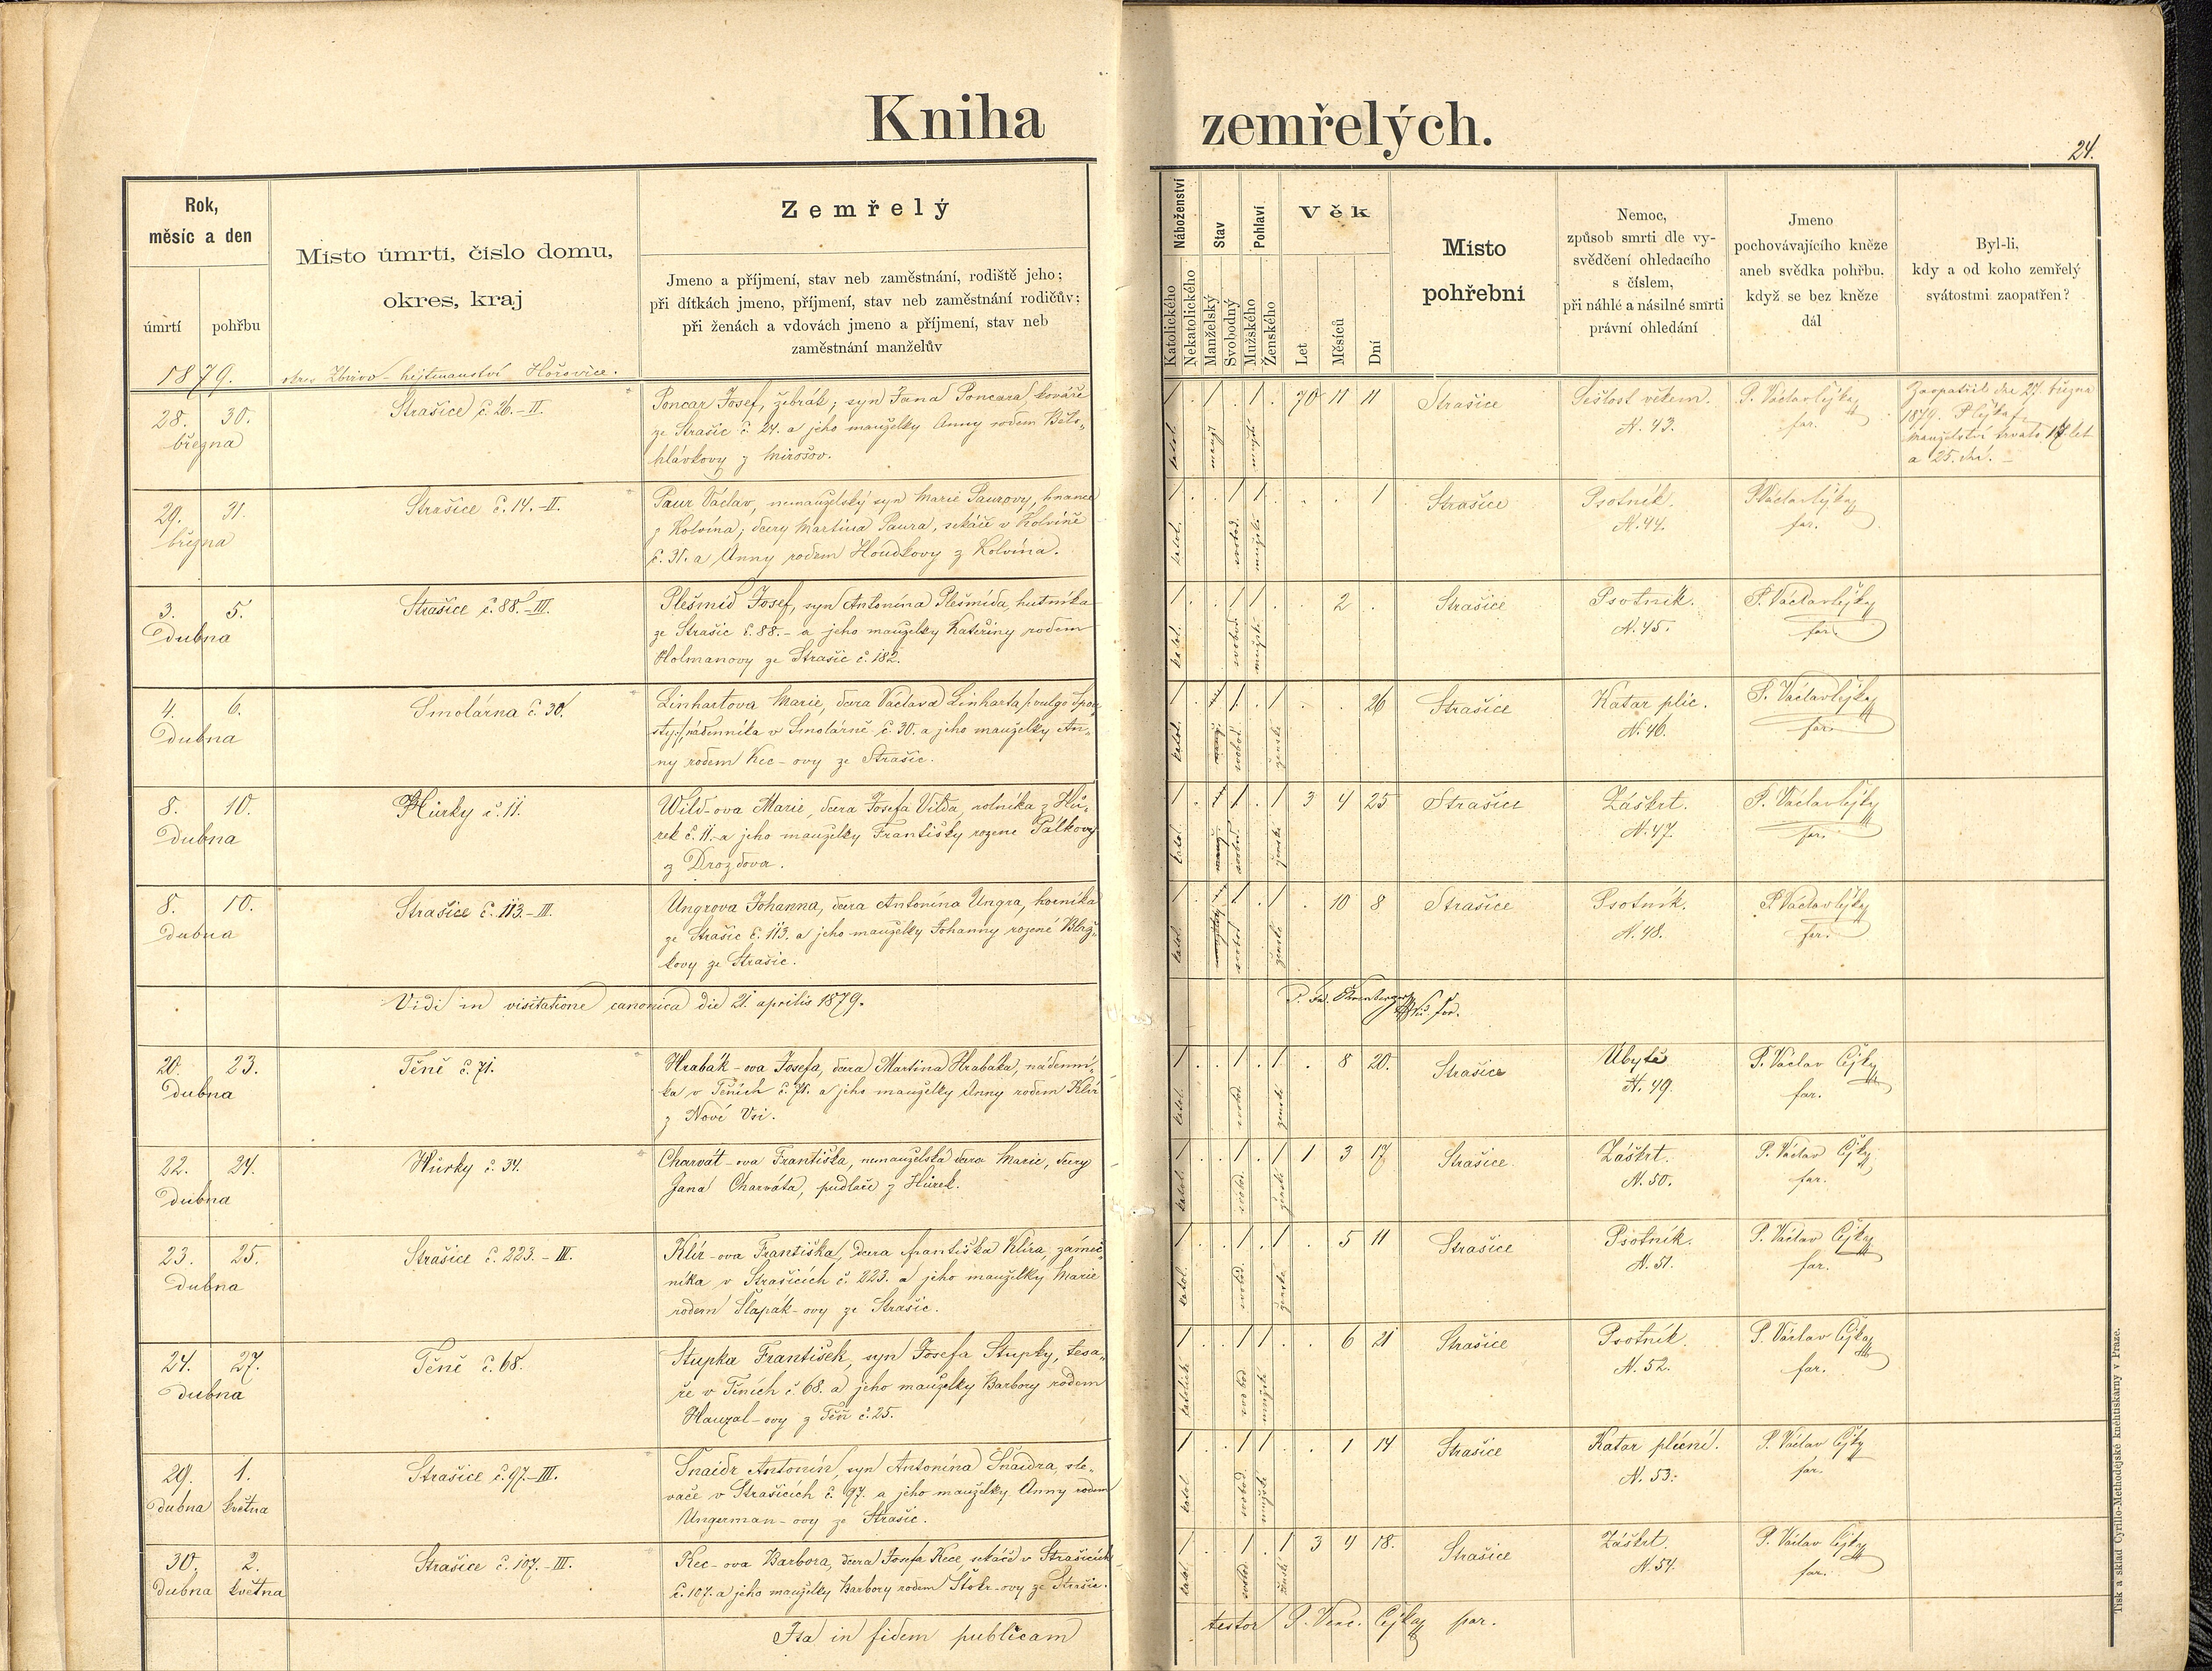 Kniha zemřelých.
24.
Rok,
měsíc a den
úmrtí
pohřbu
Místo úmrtí, číslo domu,
okres, kraj
Zemřelý
Jmeno a příjmení, stav neb zaměstnání, rodiště jeho;
při dítkách jmeno, příjmení, stav neb zaměstnání rodičův;
při ženách a vdovách jmeno a příjmení, stav neb
zaměstnání manželův
Náboženství
Katolického
Nekatolického
Stav
Manželský
Svobodný
Pohlaví
Mužského
Ženského
Věk
Let
Měsíců
Dní
Místo
pohřební
Nemoc,
způsob smrti dle vy-
svědčení ohledacího
s číslem,
při náhlé a násilné smrti
právní ohledání
Jmeno
pochovávajícího kněze
aneb svědka pohřbu,
když se bez kněze
dál
Byl-li,
kdy a od koho zemřelý
svátostmi zaopatřen?
1879.
okres Zbirov - hejtmanství Hořovice.
28. 30.
března
Strašice č. 26.-II.
Poncar Josef, žebrák; syn Jana Poncara, kováře
ze Strašic č. 24. a jeho manželky Anny rodem Bělo-
hlávkovy z Mirošov.
1 . 1 . 1 . 70 11 11
Strašice
Sešlost věkem.
N. 43.
P. Václav Čejka
far.
Zaopatřil dne 27. března
1879. P. Čejka f.
manželství trvalo 17 let
a 25. dní.
29. 31.
března
Strašice č. 14.-II.
Paur Václav, nemanželský syn Marie Paurovy,
z Kolvína; dcery Martina Paura, sekáče v Kolvíně
č. 31. a Anny rodem Houdkovy z Kolvína.
1 . . 1 1 . . . 1
Strašice
Psotník.
N. 44.
P. Václav Čejka
far.
3. 5.
Dubna
Strašice č. 88.-III.
Plešmíd Josef, syn Antonína Plešmída, hutníka
ze Strašic č. 88. - a jeho manželky Kateřiny rodem
Holmanovy ze Strašic č. 182.
1 . . 1 1 . . 2 .
Strašice
Psotník.
N. 45.
P. Václav Čejka
far.
4. 6.
Dubna
Smolárna č. 30.
Linhartova Marie, dcera Václava Linharta
nádenníka v Smolárně č. 30. a jeho manželky An-
ny rodem Kec-ovy ze Strašic.
1 . 1 . 1 . . 26
Strašice
Katar plic.
N. 46.
P. Václav Čejka
far.
8. 10.
Dubna
Hůrky č. 11.
Wild-ova Marie, dcera Josefa Vilda, rolníka z Hů-
rek č. 11. a jeho manželky Františky rozené Pálkovy
z Drozdova.
1 . 1 . 1 3 4 25
Strašice
Záškrt.
N. 47.
P. Václav Čejka
far.
8. 10.
Dubna
Strašice č. 113.-III.
Ungrova Johanna, dcera Antonína Ungra, horníka
ze Strašic č. 113. a jeho manželky Johanny rozené Bláž-
kovy ze Strašic.
1 . 1 . 1 . 10 8
Strašice
Psotník.
N. 48.
P. Václav Čejka
far.
Vidi in visitatione canonica die 21. aprilis 1879.
20. 23.
Dubna
Těně č. 71.
Hrabák-ova Josefa, dcera Martina Hrabáka, nádenní-
ka v Těních č. 71. a jeho manželky Anny rodem Klír
z Nové Vsi.
1 . . 1 . 1 . 8 20.
Strašice
Úbytě
N. 49.
P. Václav Čejka
far.
22. 24.
Dubna
Hůrky č. 34.
Charvát-ova Františka, nemanželská dcera Marie, dcery
Jana Charváta, pudlaře z Hůrek.
1 . . 1 . 1 1 3 17
Strašice.
Záškrt.
N. 50.
P. Václav Čejka
far.
23. 25.
Dubna
Strašice č. 223.-III.
Klír-ova Františka, dcera Františka Klíra, zámeč-
níka v Strašicích č. 223. a jeho manželky Marie
rodem Šlapák-ovy ze Strašic.
1 . . 1 . 1 . 5 11
Strašice
Psotník.
N. 51.
P. Václav Čejka
far.
24. 27.
Dubna
Těně č. 68.
Stupka František, syn Josefa Stupky, tesa-
ře v Těních č. 68. a jeho manželky Barbory rodem
Hauzal-ovy z Těň č. 25.
1 . . 1 1 . . 6 21
Strašice
Psotník
N. 52.
P. Václav Čejka
far.
29. 1.
dubna května
Strašice č. 97.-III.
Šnaidr Antonín, syn Antonína Šnaidra, sle-
vače v Strašicích č. 97. a jeho manželky Anny rodem
Ungerman-ovy ze Strašic.
1 . . 1 1 . . 1 14
Strašice
Katar plicní.
N. 53.
P. Václav Čejka
far.
30. 2.
dubna května
Strašice č. 107.-III.
Kec-ova Barbora, dcera Josefa Kece sekáče v Strašicích
č. 107. a jeho manželky Barbory rodem Štokr-ovy ze Strašic.
1 . . 1 . 1 3 4 18.
Strašice
Záškrt.
N. 54.
P. Václav Čejka
far.
Ita in fidem publicam testor P. Venc. Čejka par.
Tisk a sklad Cyrillo-Methodějské knihtiskárny v Praze.